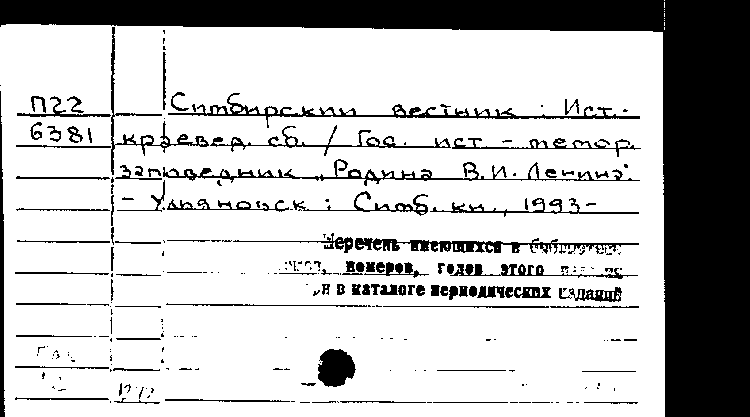 П22 Симбирский вестник : Ист.-
6381 краевед. сб. / Гос. ист.-мемор.
заповедник „Родина В.И. Ленина".
- Ульяновск : Симб. кн., 1993-
Перечень имеющихся в библиотеке
номеров, годов этого
в каталоге периодических изданий